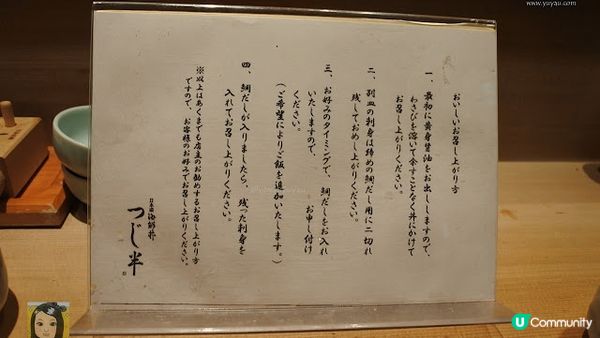 www.yuyau.com
おいしいお召し上がり方
一、最初に黄身醤油をお出ししますので、
わさびを溶いて余すことなく丼にかけて
お召し上がりください。
二、別皿の刺身は締めの鯛だし用に二切れ
残しておめし上がりください。
三、お好みのタイミングで、鯛だしをお入れ
いたしますので、お申し付け
ください。
（ご希望によりご飯を追加いたします。）
四、鯛だしが入りましたら、残った刺身を
入れてお召し上がりください。
※以上はあくまでも店主のお勧めするお召し上がり方
ですので、お客様のお好みでお召し上がりください。
日本橋海鮮丼
つじ半
U Community